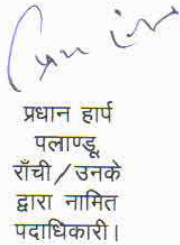 प्रधान हार्प
पलाण्डू
राँची/उनके
द्वारा नामित
पदाधिकारी।